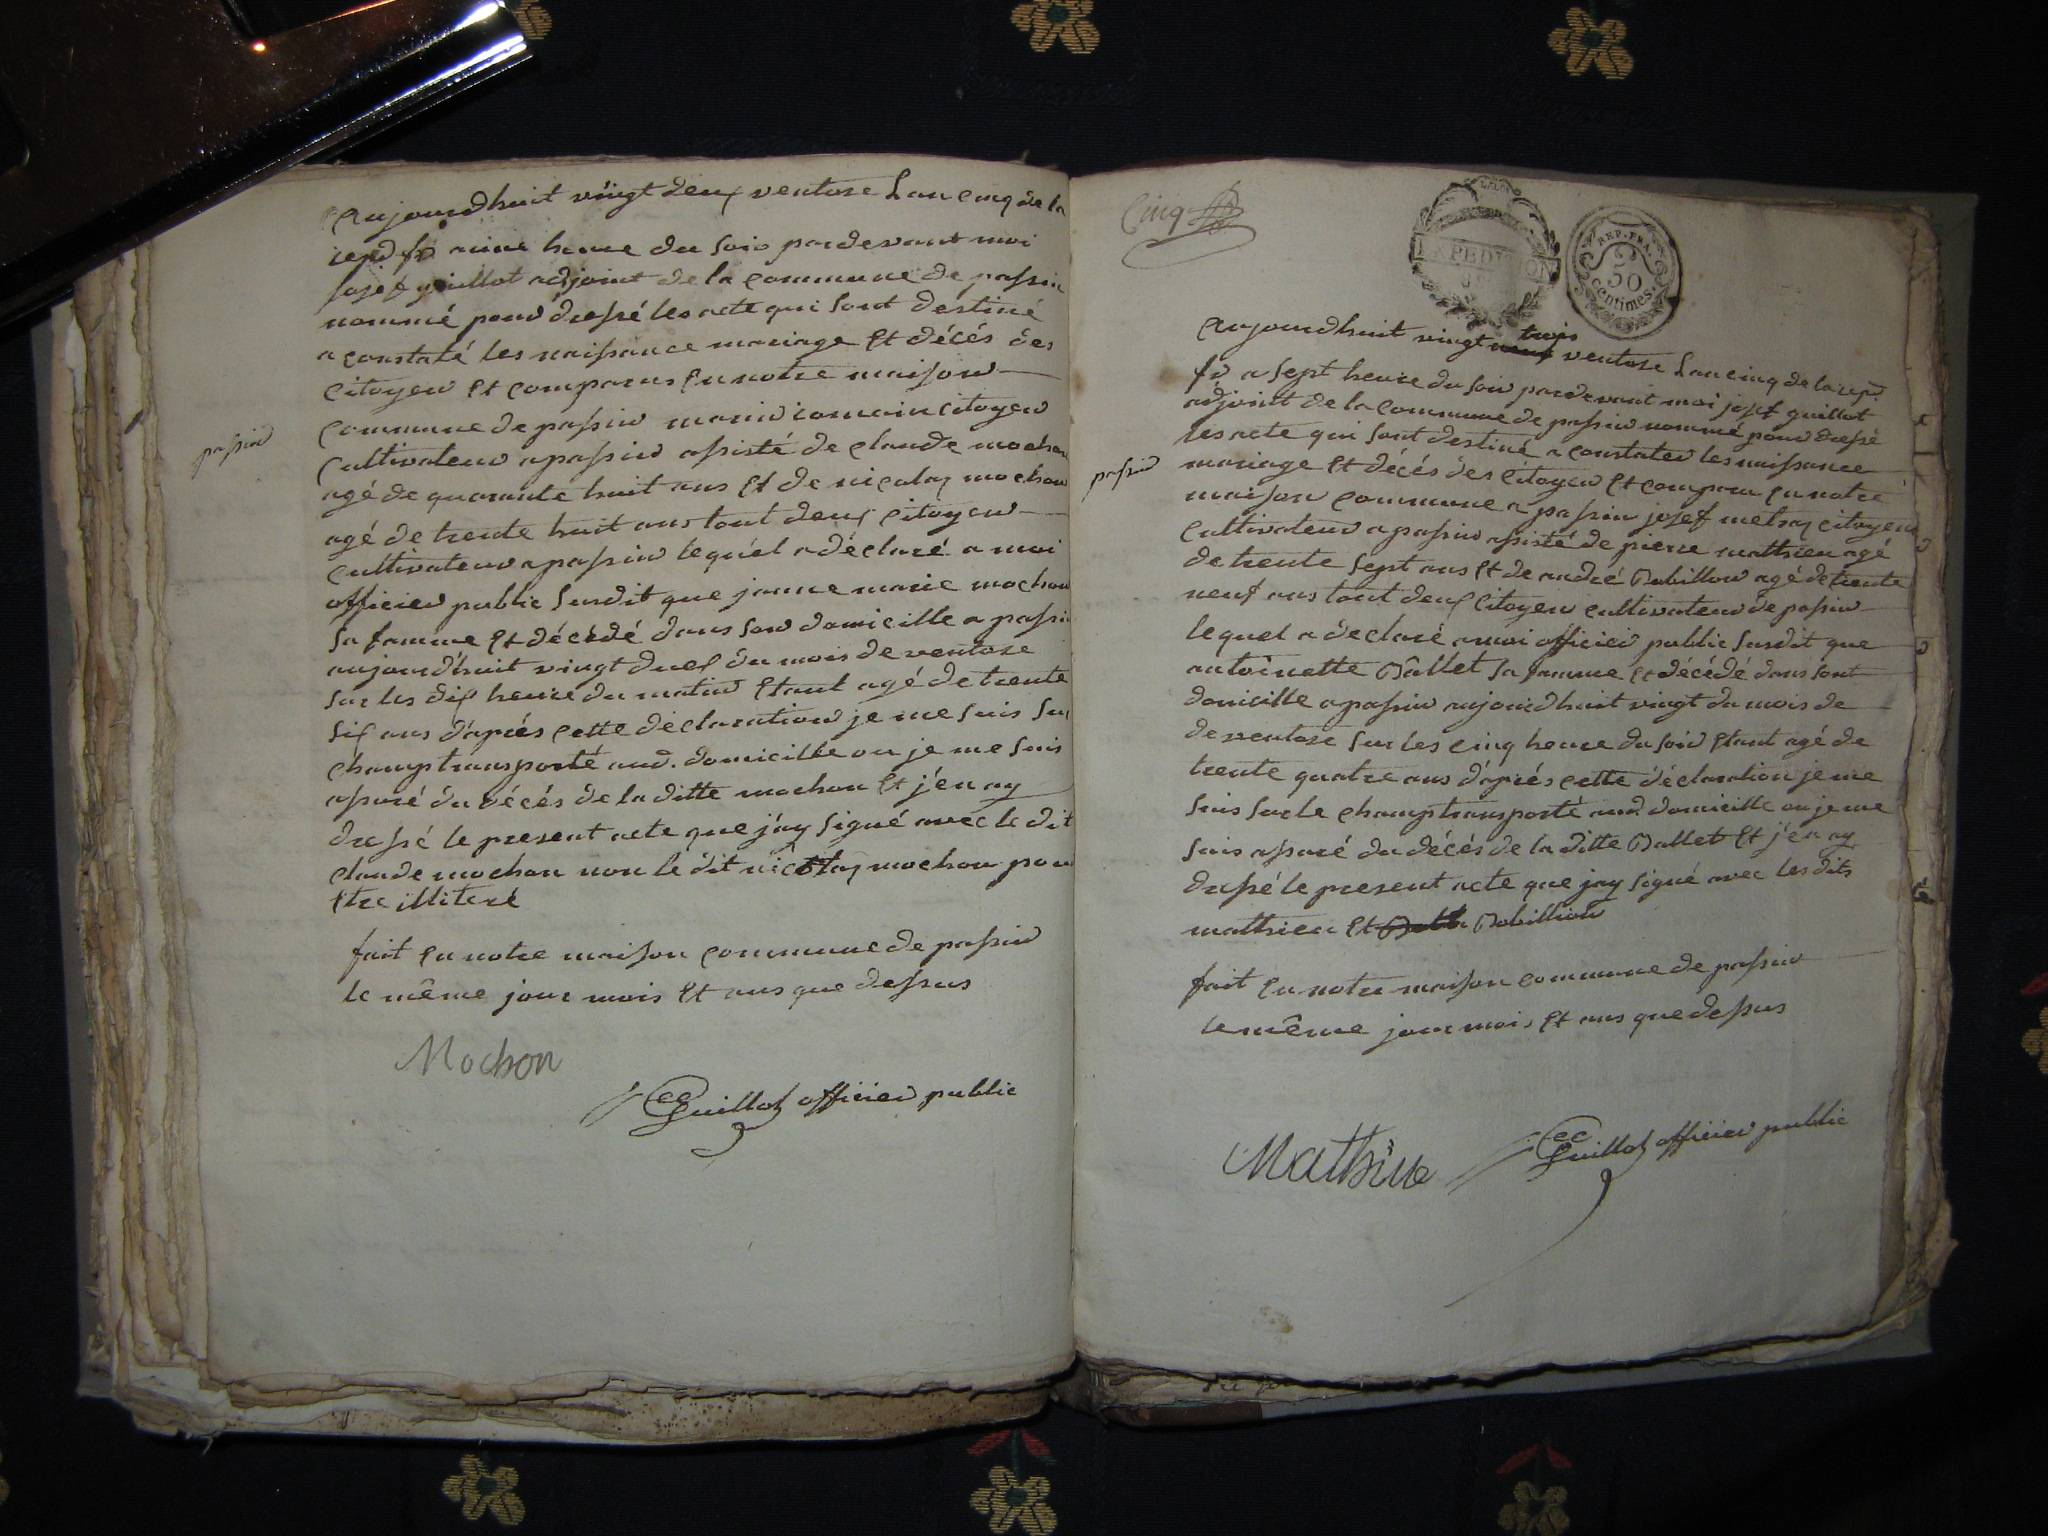 aujourdhuit vingt deux ventose Lan cinq de la
repu fr a une heure du soir pardevant moi
josef guillot adjoint de la commune de passin
nommé pour dressé les acte qui sont destiné
a constaté les naissance mariage Et décés des
Citoyen Et comparus En notre maison
commune de passin romain citoyen
Cultivateur a passin assisté de claude mochon
agé de quarante huit ans Et de nicolas mochon
agé de trente huit ans tout deux Citoyen
cultivateur a passin lequel a déclaré a moi
officier public Susdit que janne marie mochon
sa famme Et décédé dans son domicille a passin
aujourdhuit vingt duex du mois de ventose
sur les dix heure du matin Etant agé de trente
six ans d'aprés cette déclaration je me suis sur
champ transporté aud. domicille ou je me suis
assuré du décés de la ditte mochon Et j'en ay
dressé le present acte que j'ay signé avec le dit
claude mochon non le dit nicolas mochon pour
Etre illiteré
fait En notre maison commune de passin
le même jour mois Et ans que dessus
Mochon
Guillot officier public
passin
Cinq
EXPEDITION
REP. FRA.
50
centimes.
aujourdhuit vingt trois ventose Lan cinq de la rep.
fr a sept heure du soir pardevant moi josef guillot
adjoint de la commune de passin nommé pour dressé
les acte qui sont destiné a constater les naissance
mariage Et décés des Citoyen Et comparu En notre
maison commune a passin josef citoyen
cultivateur a passin assisté de pierre matthieu agé
de trente sept ans Et de andré Robillon agé de trente
neuf ans tout deux Citoyen cultivateur de passin
lequel a declaré a moi officier public susdit que
antoinette Ballet sa famme Et décédé dans sont
domicille a passin aujourdhuit vingt du mois de
de ventose sur les cinq heure du soir Etant agé de
trente quatre ans d'aprés cette déclaration je me
suis sur le champ transporté aud. domicille ou je me
suis assuré du décés de la ditte Ballet Et j'en ay
dressé le present acte que j'ay signé avec les dits
matthieu Et Robillion
fait En notre maison commune de passin
le même jour mois Et ans que dessus
Mathiue
Guillot officier public
passin